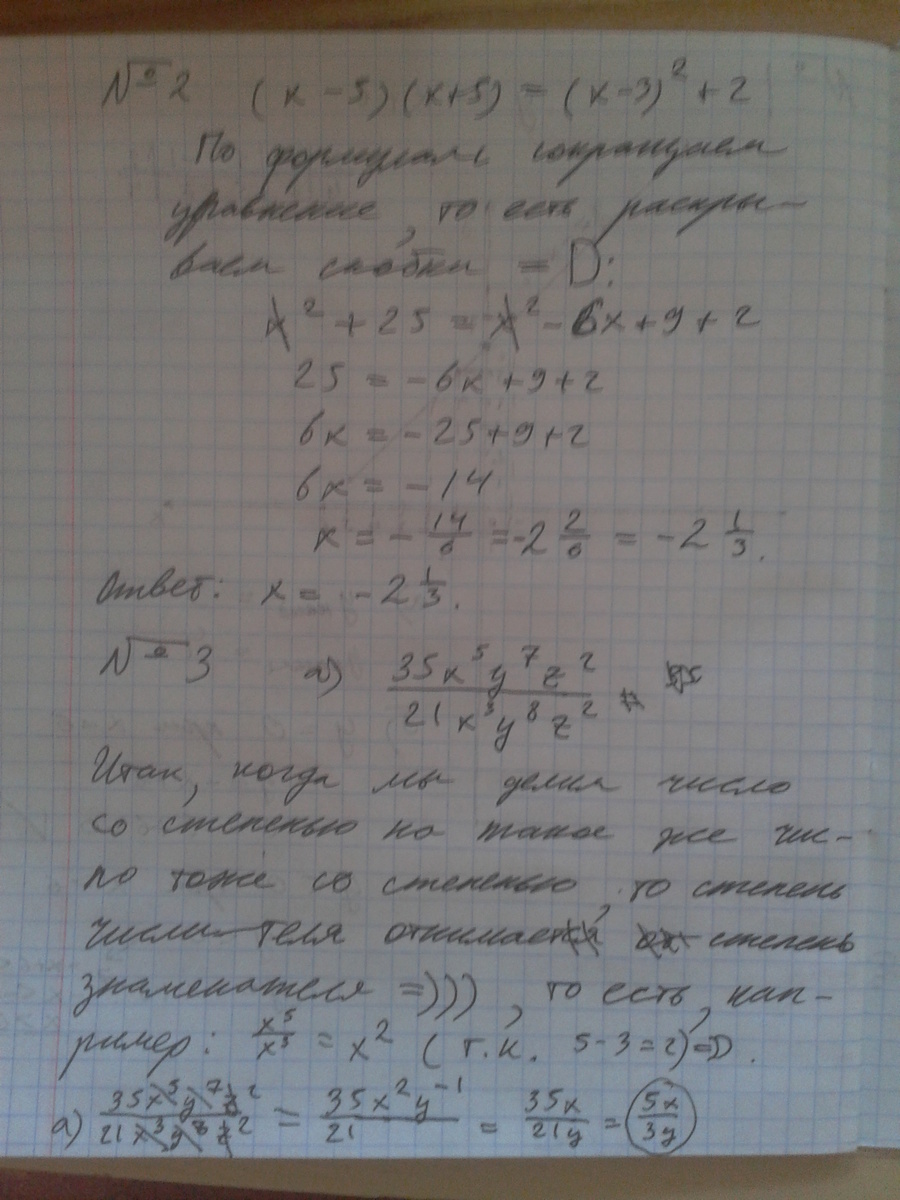 №2 (x-5)(x+5) = (x-3)² + 2
По формулам сокращаем
уравнение, то есть раскры-
ваем скобки =D:
x² + 25 = x² - 6x + 9 + 2
25 = -6x + 9 + 2
6x = -25 + 9 + 2
6x = -14
x = -14/6 = -2 2/6 = -2 1/3.
Ответ: x = -2 1/3.
№3 а) 35x⁵y⁷z² / 21x³y⁸z²
Итак, когда мы делим число
со степенью на такое же чис-
ло тоже со степенью, то степень
числителя отнимает степень
знаменателя =))), то есть, нап-
ример: x⁵/x³ = x² (т.к. 5-3=2)=D.
а) 35x⁵y⁷z² / 21x³y⁸z² = 35x²y⁻¹ / 21 = 35x / 21y = 5x / 3y